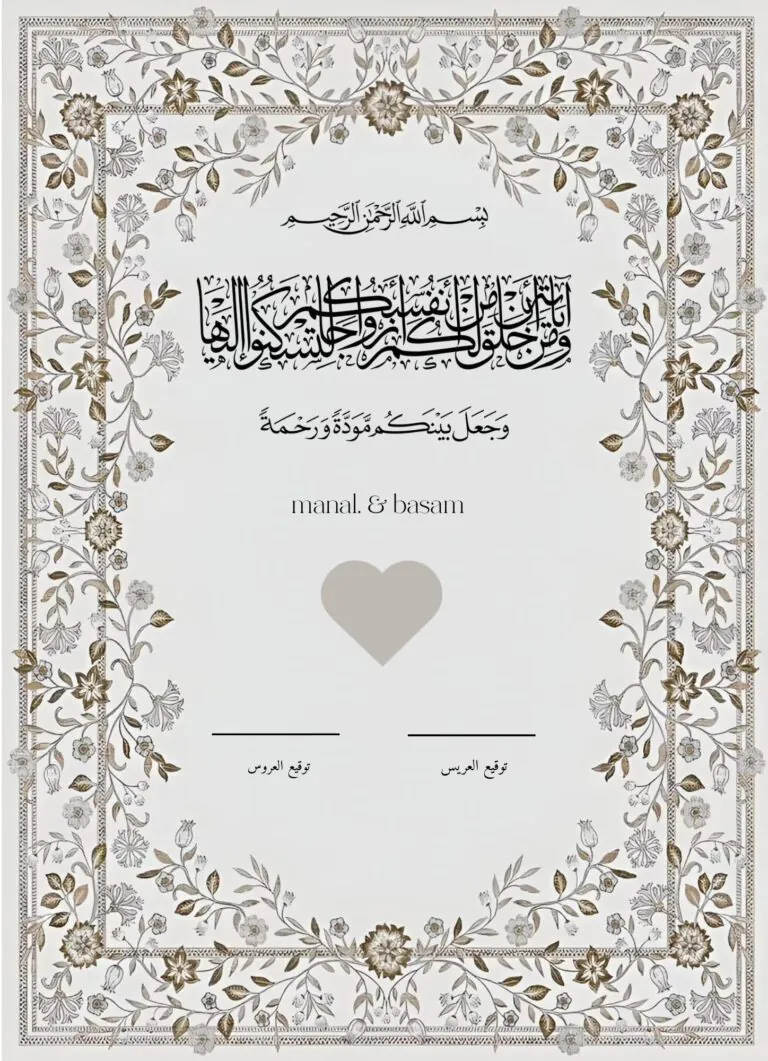 بِسْمِ اللَّهِ الرَّحْمَٰنِ الرَّحِيمِ
وَمِنْ آيَاتِهِ أَنْ خَلَقَ لَكُم مِّنْ أَنفُسِكُمْ أَزْوَاجًا لِّتَسْكُنُوا إِلَيْهَا
وَجَعَلَ بَيْنَكُم مَّوَدَّةً وَرَحْمَةً
manal. & basam
توقيع العريس
توقيع العروس